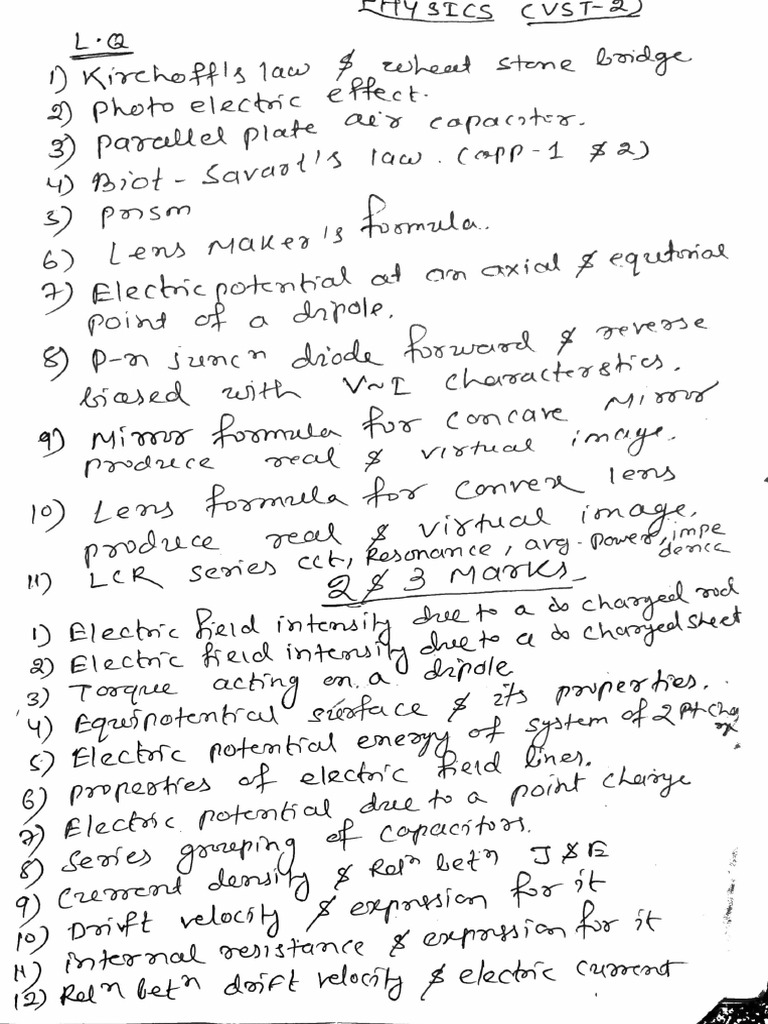 PHYSICS (VST-2)
L.Q
1) Kirchoff's law & wheat stone bridge
2) Photo electric effect.
3) Parallel plate air capacitor.
4) Biot - Savart's law. (app-1 & 2)
5) Prism
6) Lens Maker's formula.
7) Electric potential at an axial & equtorial
point of a dipole.
8) P-n juncⁿ diode forward & reverse
biased with V~I characterstics.
9) Mirror formula for concave Mirror
produce real & virtual image.
10) Lens formula for convex lens
produce real & virtual image.
11) LCR series cct, Resonance, avg. power, impe
dence
2 & 3 Marks
1) Electric field intensity due to a ∞ charged rod
2) Electric field intensity due to a ∞ charged sheet
3) Torque acting on a dipole
4) Equipotential surface & its properties.
5) Electric potential energy of system of 2 pt chg
6) Properties of electric field lines.
7) Electric potential due to a point charge
8) Series grouping of capacitors.
9) Current density & Relⁿ betⁿ J & E
10) Drift velocity & expression for it
11) internal resistance & expression for it
12) Relⁿ betⁿ drift velocity & electric current